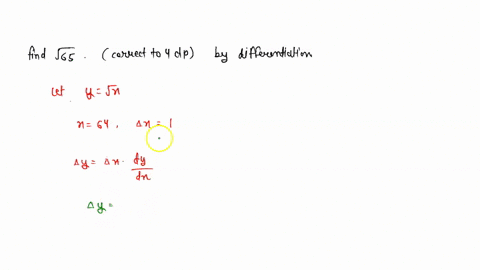 find √65 . (correct to 4 dp) by differentiation
let y = √x
x = 64 , Δx = 1
Δy = Δx · dy/dx
Δy =